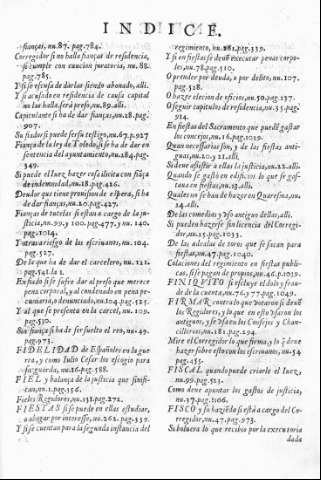 INDICE.
fianças, nu.87. pag.784.
Corregidor si no halla fianças de residencia,
si cumple con caucion juratoria, nu. 88.
pag.785.
Y si se escusa de darlas siendo abonado, alli.
Y si acusado en residencia de causa capital
no las halla, será preso, nu.89. alli.
Capitulante si ha de dar fianças, nu.18. pag.
907.
Su fiador si puede ser su testigo, nu.67.p.927
Fiança de la ley de Toledo, si se ha de dar en
sentencia del ayuntamiento, nu.184.pag.
349.
Si puede el Iuez hazer cosa ilicita con fiãça
de indemnidad, nu.18. pag.426.
Deudor que tiene provision de espera, si ha
de dar fianças, nu.20. pag.427.
Fianças de tutelas si estan a cargo de la ju-
sticia, nu.99.y 100. pag.477. y nu. 140.
pag.1014.
Toma a riesgo de los escrivanos, nu. 104.
pag.527.
De la que ha de dar el carcelero, nu. 121.
En fiado si se suele dar al preso que merece
pena corporal, y al condenado en pena pe-
cuniaria, o denunciado, nu.104.pag.525.
Y al que se presenta en la carcel, nu. 109.
pag.530.
Sin fiança si ha de ser suelto el reo, nu.49.
pag.973.
FIDELIDAD de Españoles en la gue
rra, y como Iulio Cesar los escogio para
su guarda, nu.26.pag.588.
FIEL y balança de la justicia que signifi-
can, nu.1. pag.156.
Fieles Regidores, nu.131.pag.272.
FIESTAS si se puede en ellas estudiar,
o abogar por interesse, nu.261. pag.339.
Y si se cuentan para la segunda instancia del
regimiento, nu.261.pag.339.
Y si en fiestas se deve executar penas corpo-
les, nu.78.pag.510.
O prender por deuda, o por delito, nu.107.
pag.528.
O hazer eleccion de oficios, nu.50.pag.137.
O seguir capitulos de residencia, nu.35.pag.
914.
En fiestas del Sacramento que puedẽ gastar
los concejos, nu.16.pag.1039.
Quan necessarias son, y de las fiestas anti-
guas, nu.20.y 21.alli.
Si deve assistir a ellas la justicia, nu.22.alli.
Quando se gastò en edificios lo que se gas-
tava en fiestas, nu.13.alli.
Quales no se han de hazer en Quaresma, nu.
14.alli.
De las comedias y vso antiguo dellas, alli.
Si pueden hazerse sin licencia del Corregi-
dor, nu.15.pag.1033.
De las alcalas de toros que se sacan para
fiestas, nu.47.pag.1040.
Colaciones del regimiento en fiestas publi-
cas, si se pagan de propios, nu.46.p.1039.
FINIQVITO si escluye el dolo y frau-
de de la cuenta, nu.76.y 77.pag.1049.
FIRMAR contrato que votaron si devẽ
los Regidores, y lo que en esto vsaron los
antiguos, y se vsa en los Consejos y Chan-
cillerias, nu.181.pag.294.
Mire el Corregidor lo que firma, y lo q̃ deve
hazer sobre esto con los escrivanos, nu.54
pag.455.
FISCAL quando puede criarle el Iuez,
nu.99.pag.511.
Como deve apuntar los gastos de justicia,
nu.37.pag.1106.
FISCO y su haziẽda si està a cargo del Cor
regidor, nu.47.pag.973.
Si bolverà lo que recibio por la executoria
dada